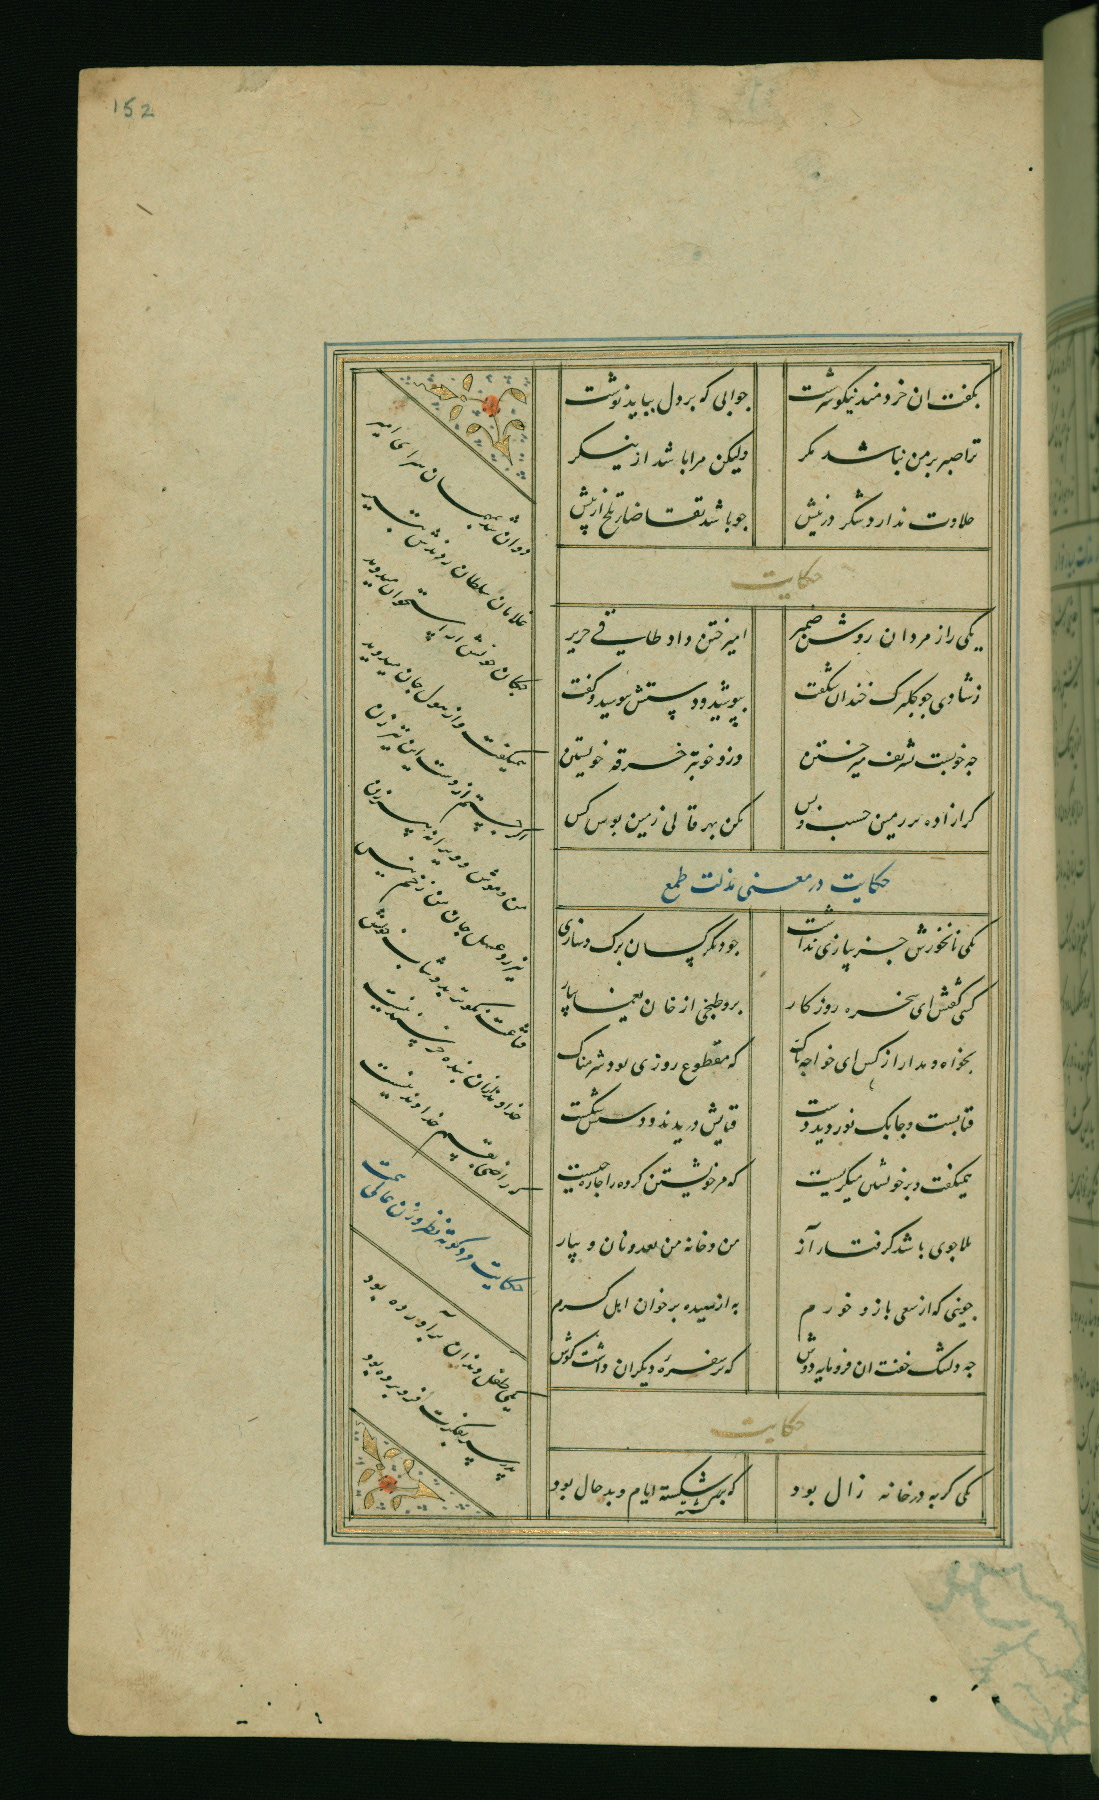 152
بگفت ان خردمند نیکوسرشت
جوابی که بر دل بباید نوشت
ترا صبر بر من نباشد مگر
ولیکن مرا باشد از نیشکر
حلاوت ندارد شکر در نیش
جو باشد تقاضای تلخ از پیش
حکایت
یکی را ز مردان روشن ضمیر
امیر ختن داد طاقی حریر
ز شادی جو کلبرک خندان شکفت
بپوشید و دستش ببوسید و کفت
جه خوبست تشریف میر ختن
وزو خوبتر خرقه خویشتن
کر ازاده بر زمین خسب و بس
مکن بهر قالی زمین بوس کس
حکایت در معنی مذلت طمع
یکی نانخورش جز پیازی نداشت
جو دیکر کسان برک و سازی
کسی کفتش ای سخره روزکار
برو طبخی از خان یغما بیار
بخواه و مدار از کس ای خواجه باک
که مقطوع روزی بود شرمناک
قبا بست و جابک نوردید دست
قبایش دریدند و دستش شکست
همیکفت و بر خویشتن میکریست
که مر خویشتن کرده را جاره جیست
بلا جوی باشد کرفتار آز
من و خانه من بعد و نان و پیاز
جوینی که از سعی بازو خورم
به از میده بر خوان اهل کرم
جه دلتنک خفت ان فرومایه دوش
که بر سفره دیکران داشت کوش
حکایت
یکی کربه در خانه زال بود
که برکشته ایام و بدحال بود
دوان شد بمهمان سرای امیر
غلامان سلطان زدندش بتیر
جکان خونش از استخوان میدوید
همیکفت و از هول جان میدوید
اکر جستم از دست این تیرزن
من و موش و ویرانه پیرزن
نیرزد عسل جان من زخم نیش
قناعت نکوتر بدوشاب خویش
خداوند ازان بنده خرسند نیست
که راضی بقسم خداوند نیست
حکایت مرد کوته نظر و زن عالی همت
یکی طفل دندان برآورده بود
پدر سر بفکرت فرو برده بود